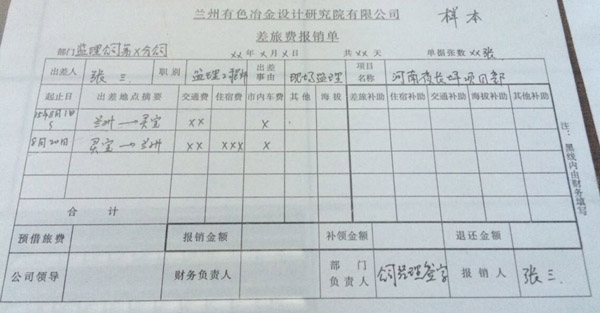 兰州有色冶金设计研究院有限公司 样本
差旅费报销单
部门 监理公司第x分公司 xx年x月x日 共xx天 单据张数xx张
出差人 张三 职别 监理工程师 出差事由 现场监理 项目名称 河南省长坪项目部
起止日 出差地点摘要 交通费 住宿费 市内车费 其他 海拔 差旅补助 住宿补助 交通补助 海拔补助 其他补助
15年8月1日 兰州→灵宝 xx x
8月20日 灵宝→兰州 xx xxx x
合计
预借旅费 报销金额 补领金额 退还金额
公司领导 财务负责人 部门负责人 签字 报销人 张三
注：黑线内由财务填写